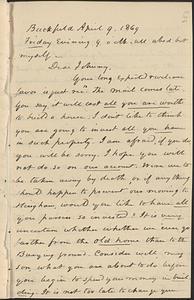 Buckfield April 9, 1869
Friday Evening 9 o clk. all abed but
myself —
Dear Johnny,
Your long expected & welcome
favor just rec'd The mail comes late
You say it will cost all you are worth
to build a house. I don't like to think
you are going to invest all you have
in such property. I am afraid, if you do
you will be sorry. I hope you will
not do so on our account. Were we to
be taken away by death or if any thing
should happen to prevent our moving to
Hingham, would you like to have all
you possess so invested? It is very
uncertain whether we ever go
farther from the old home than to the
Burying ground. Consider well my
son what you are about to do before
you begin to spend your money in buil
ding. It is not too late to change your